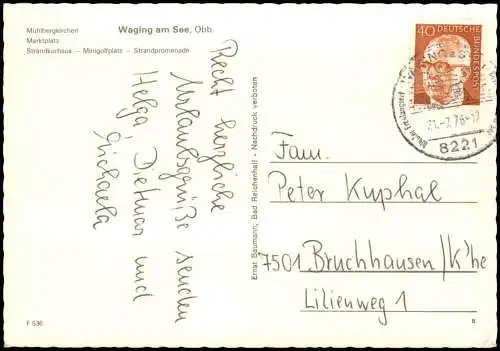 Mühlbergkircherl
Marktplatz
Strandkurhaus — Minigolfplatz — Strandpromenade
Waging am See, Obb.
Recht herzliche
Urlaubsgrüße senden
Helga, Dietmar und
Michaela
Ernst Baumann, Bad Reichenhall - Nachdruck verboten
40 DEUTSCHE
BUNDESPOST
8221
Fam.
Peter Kuphal
7501 Bruchhausen/K'he
Lilienweg 1
F 536
R